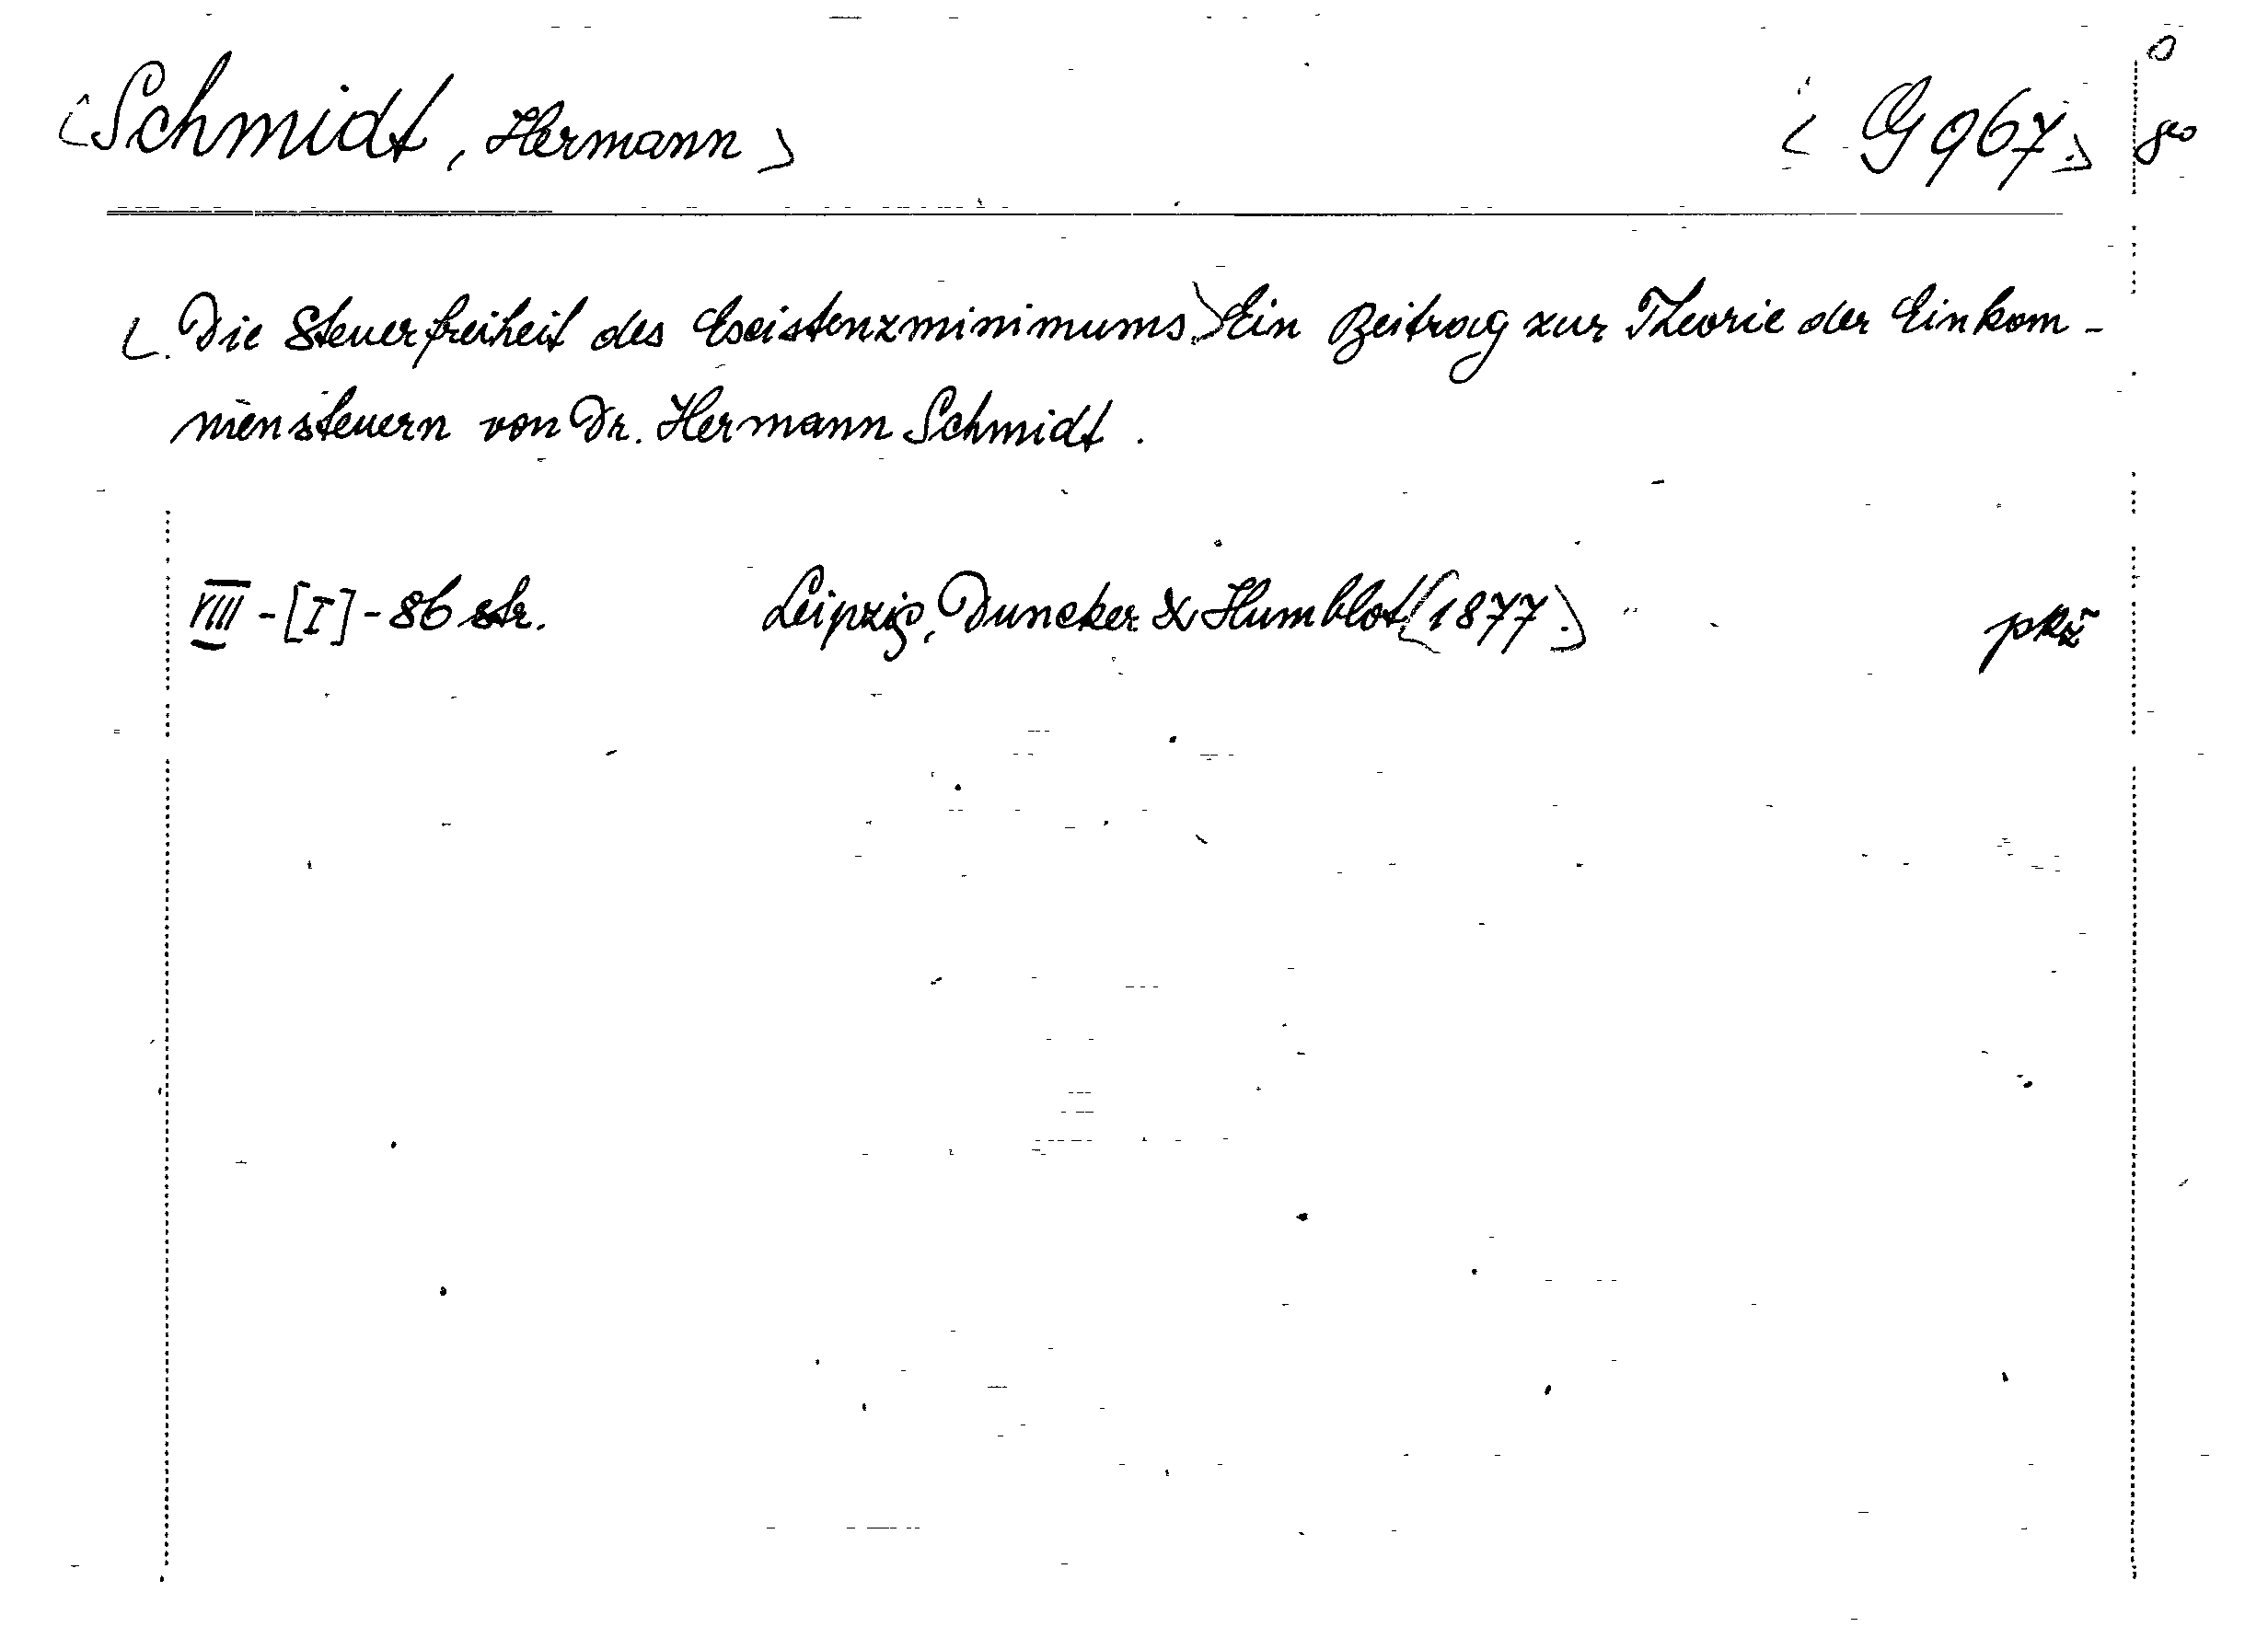 <Schmidt, Hermann> <G 967.>
<Die Steuerfreiheit des Existenzminimums.> Ein Beitrag zur Theorie der Einkom-
mensteuern von Dr. Hermann Schmidt.
VIII-[I]-86 str. Leipzig, Duncker & Humblot <1877.> pkž